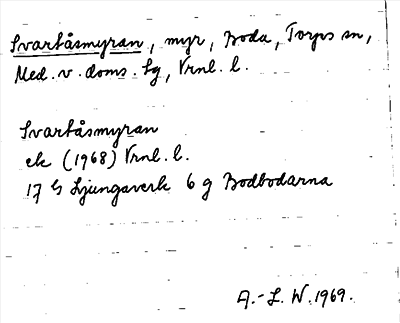 Svartåsmyran, myr, Boda, Torps sn,
Med. v. doms. sg, Vrnl. l.
Svartåsmyran
ek (1968) Vrnl. l.
17 G Ljungaverk 6 g Bodbodarna
A.-L. W. 1969.